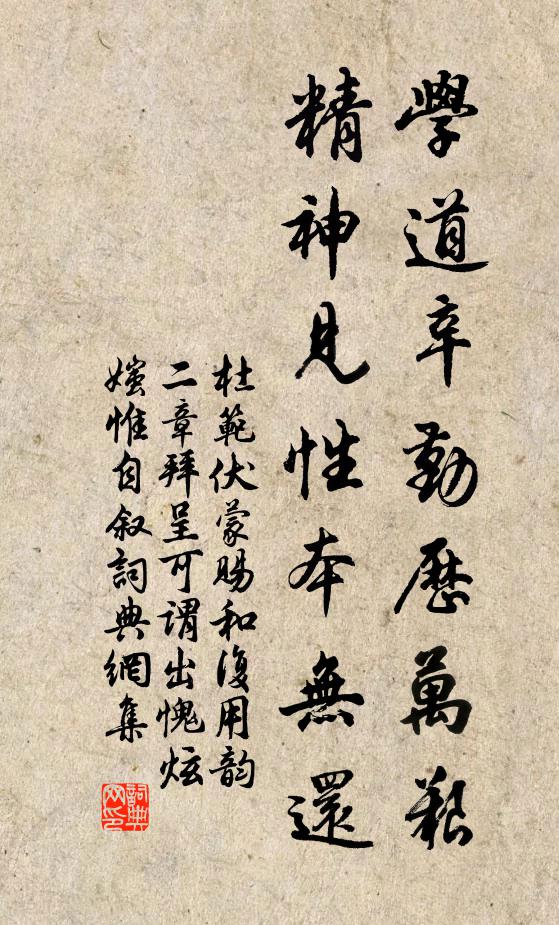 學道辛勤歷萬艱
精神見性本無還
杜範伏蒙賜和復用韵
二章拜呈可謂出愧炫
媸惟自叙詞典網集
詞典
网印